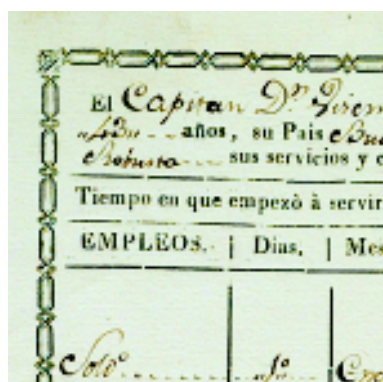 El Capitan Dn
43 años, su Pais
Robusta sus servicios y
Tiempo en que empezò à servir
EMPLEOS. Dias, Mes
Soldo 1o